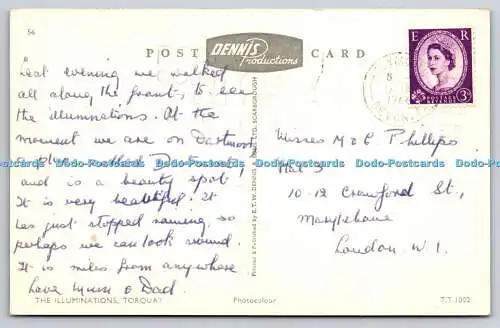 56
POST CARD
DENNIS
Productions
E R
POSTAGE REVENUE
3D
Last evening we walked
all along the front, to see
the illumnations. At the
moment we are on Dartmoor,
a place called
and is a beauty spot,
It is very beautiful. It
has just stopped raining, so
perhaps we can look round.
It is miles from anywhere
Love Mum & Dad.
Misses M & C Phillips
Flat 3
10-12 Crawford St.,
Marylebone
London W. 1
Printed & Published by E.T.W. DENNIS LTD., SCARBOROUGH
Dodo-Postcards Dodo-Postcards Dodo-Postcards Dodo-Postcards Dodo-Postcards
THE ILLUMINATIONS, TORQUAY
Photocolour
T.T. 1002